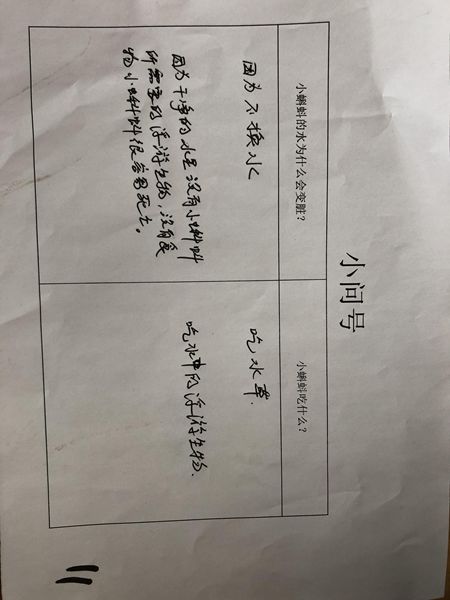 小问号
小蝌蚪的水为什么会变脏?
小蝌蚪吃什么?
因为不换水
因为干净的水里没有小蝌蚪
所需要的浮游生物,没有食
物小蝌蚪很容易死亡。
吃水草.
吃水中的浮游生物.